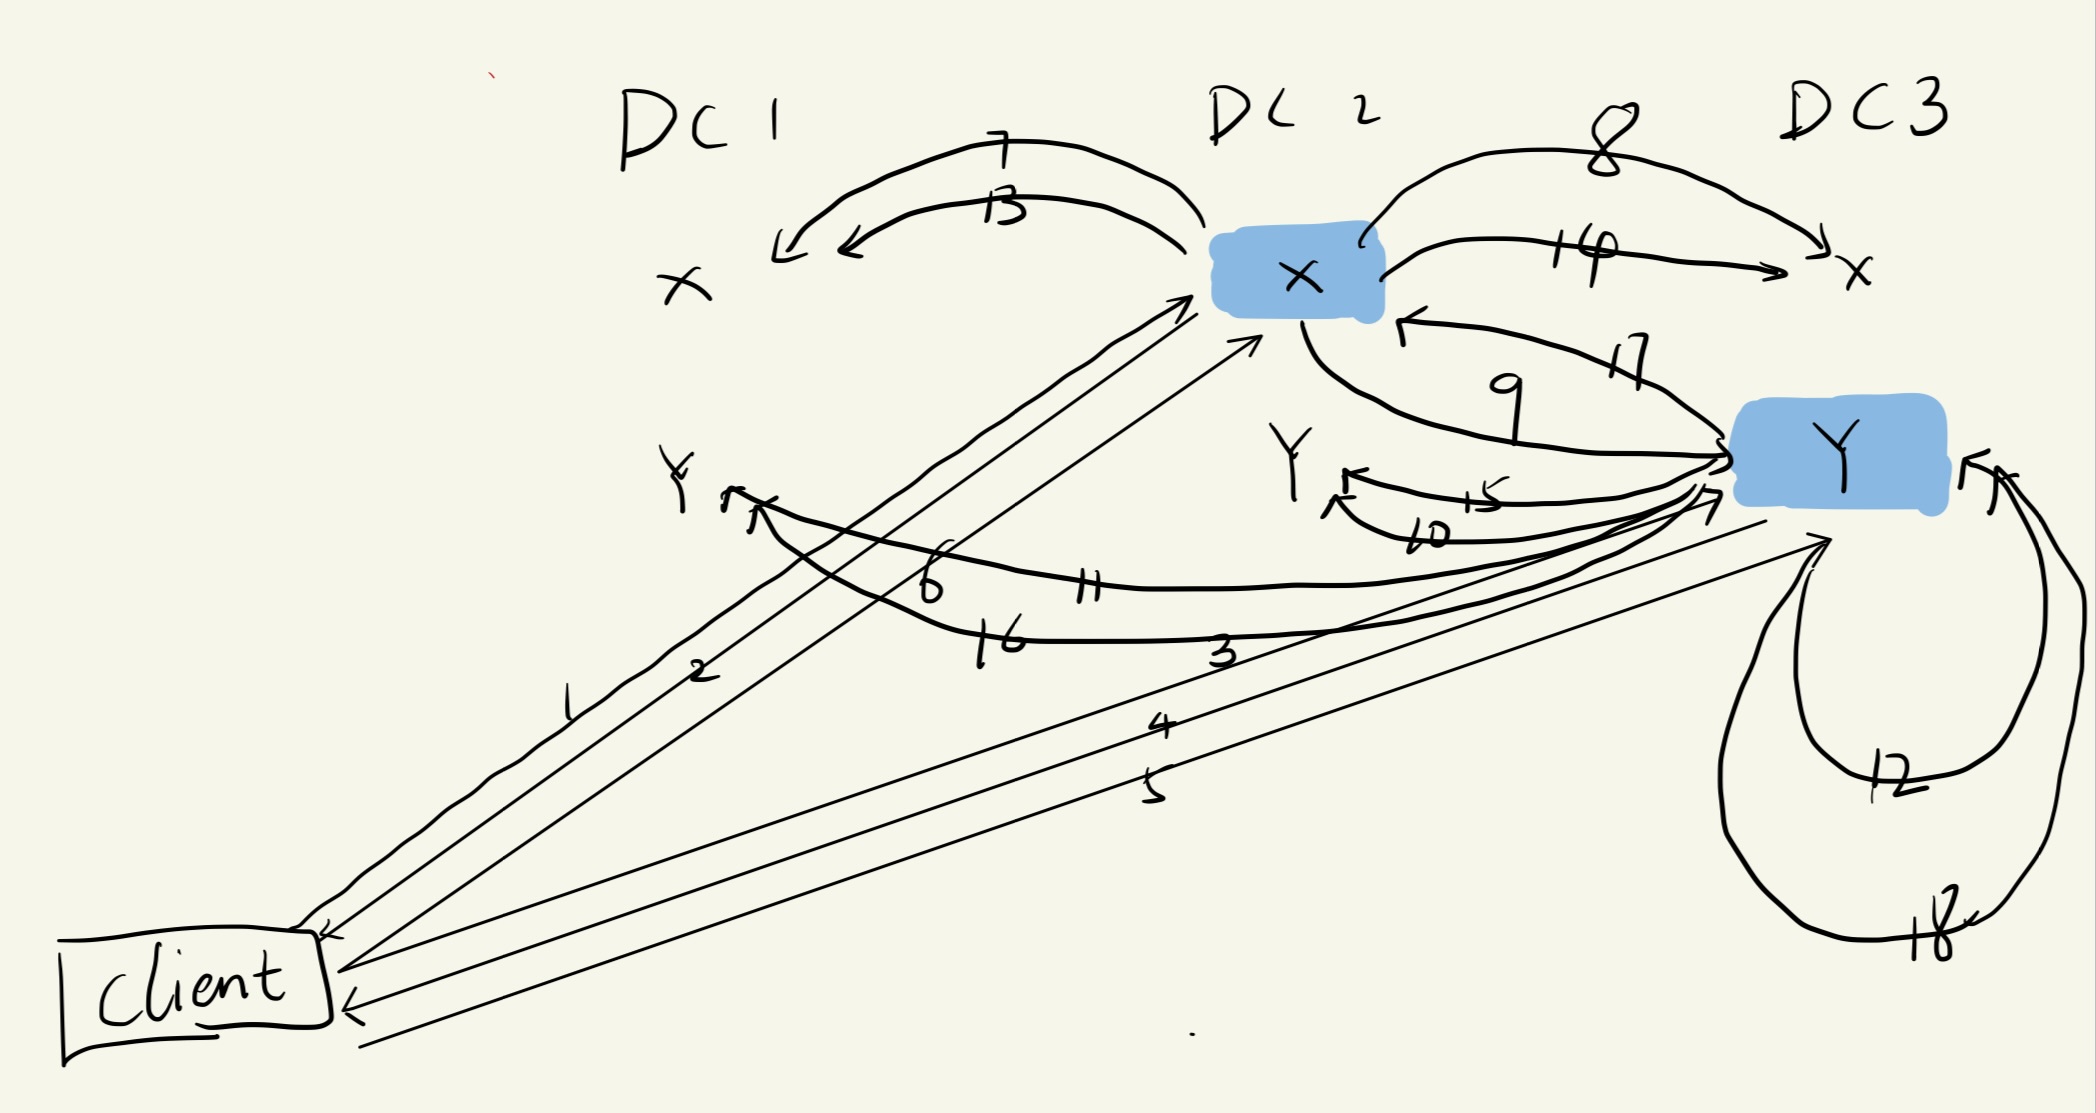 DC1 DC2 DC3
7 8
13
14
X X X
17
9
Y Y Y
15
10
6 11
16 3
2
1
4
5
12
18
client